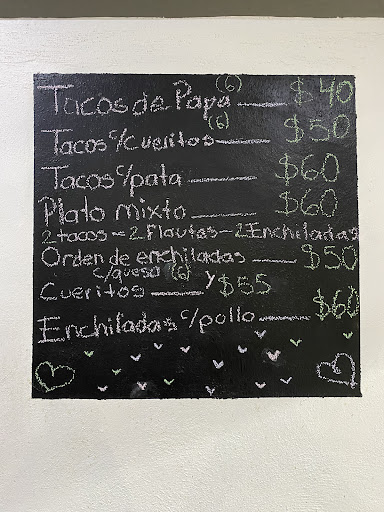 Tacos de Papa (6) $40
Tacos c/cueritos (6) $50
Tacos c/pata $60
Plato mixto $60
2 tacos - 2 Flautas - 2 Enchiladas
Orden de enchiladas $50
c/queso (6)
Cueritos y $55
Enchiladas c/pollo $60